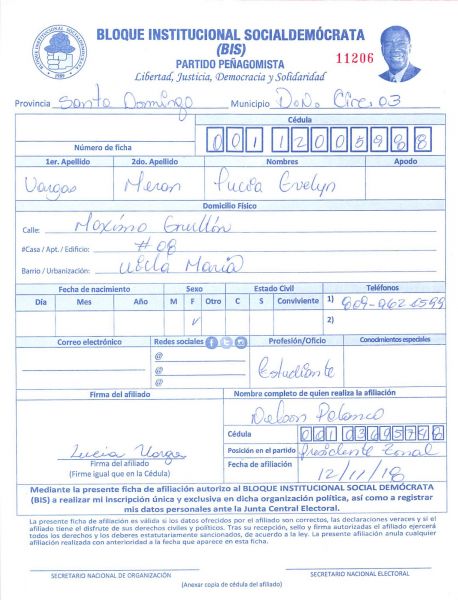 BLOQUE INSTITUCIONAL SOCIALDEMÓCRATA
(BIS)
PARTIDO PEÑAGOMISTA
11206
Libertad, Justicia, Democracia y Solidaridad
Provincia Santo Domingo Municipio
Cédula
Número de ficha 00112005988
1er. Apellido 2do. Apellido Nombres Apodo
Vargas Evelyn
Domicilio Físico
Calle: Máximo Grullón
#Casa / Apt. / Edificio: #08
Barrio / Urbanización: Villa María
Fecha de nacimiento Sexo Estado Civil Teléfonos
Día Mes Año M F Otro C S Conviviente 1) 809-962
2)
Correo electrónico Redes sociales Profesión/Oficio Conodmientos especiales
@
@ Estudiante
@
Firma del afiliado Nombre completo de quien realiza la afiliación
Polanco
Cédula
Lucia Vargas Posición en el partido Presidente Zonal
Firma del afiliado
(Firme igual que en la Cédula) Fecha de afiliación 12/11/18
Mediante la presente ficha de afiliación autorizo al BLOQUE INSTITUCIONAL SOCIAL DEMÓCRATA
(BIS) a realizar mi inscripción única y exclusiva en dicha organización política, así como a registrar
mis datos personales ante la Junta Central Electoral.
La presente ficha de afiliación es válida si los datos ofrecidos por el afiliado son correctos, las declaraciones veraces y si el
afiliado tiene el disfrute de sus derechos civiles y políticos. Tras su recepción, sello y firma autorizadas el afiliado ejercerá
todos los derechos y los deberes estatutariamente sancionados, de acuerdo a la ley. La presente afiliación anula cualquier
afiliación realizada con anterioridad a la fecha que aparece en esta ficha.
SECRETARIO NACIONAL DE ORGANIZACIÓN SECRETARIO NACIONAL ELECTORAL
(Anexar copia de cédula del afiliado)